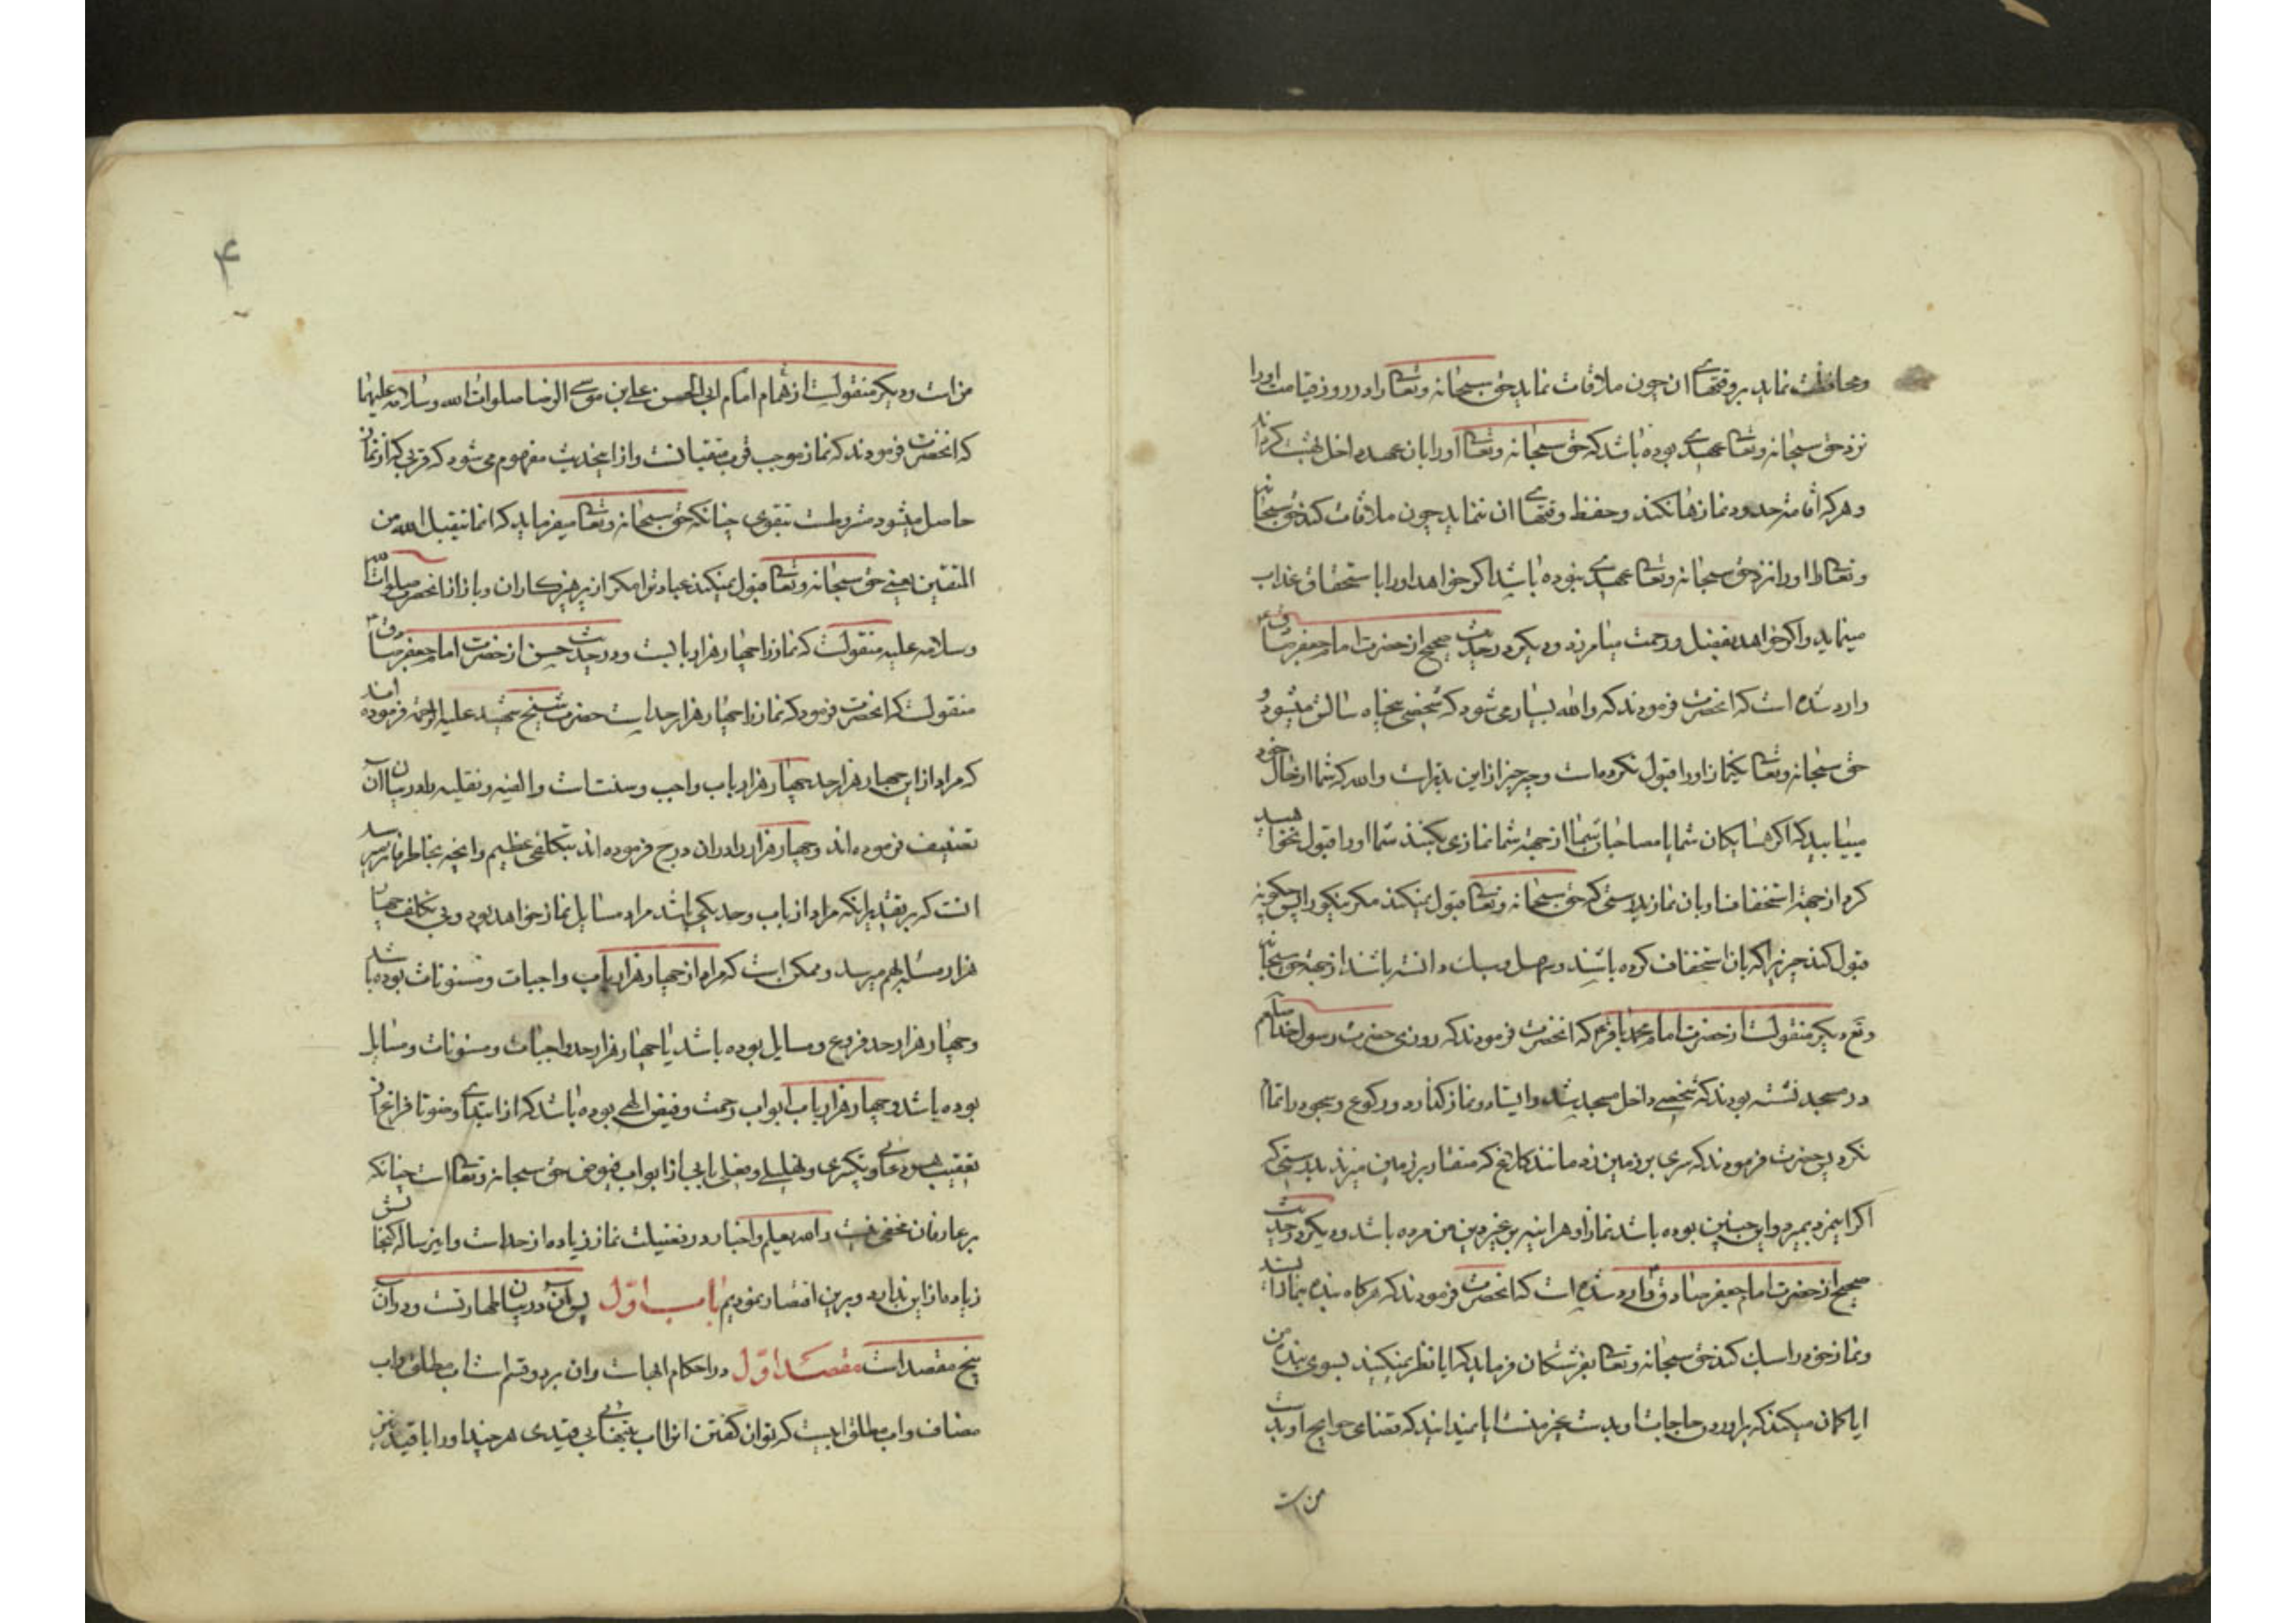 ومحافظت نماید بر وقتهای ان چون ملاقات نماید حق سبحانه وتعالی را در روز قیامت او را
نزد حق سبحانه وتعالی عهدی بوده باشد که حق سبحانه وتعالی او را بان عهد داخل بهشت کرداند
وهر که اقامت حدود نمازها نکند وحفظ وقتهای ان ننماید چون ملاقات کند حق سبحانه
وتعالی را او را نزد حق سبحانه وتعالی عهدی نبوده باشد اکر خواهد او را باستحقاق عذاب
مینماید واکر خواهد بفضل ورحمت میامرزد ودیکر در حدیث صحیح از حضرت امام جعفر صادق
وارد شده است که انحضرت فرمودند که والله بسیار می شود که شخصی پنجاه سالش میشود و
حق سبحانه وتعالی یکنماز او را قبول نکرده است وچه چیز از این بدتر است والله که شما از حال خود
میابید که اکر همسایکان شما یا مصاحبان شما از جهة شما نمازی بکنند شما او را قبول نخواهید
کرد از جهة استخفاف او بان نماز بدرستی که حق سبحانه وتعالی قبول نمیکند مکر نیکو را پس چکونه
قبول کند چیزی را که بان استخفاف کرده باشند وسهل وسبک دانسته باشند از جهة حق سبحانه
دیکر منقولست از حضرت امام محمد باقر که انحضرت فرمودند که روزی حضرت رسول خدا
در مسجد نشسته بودند که شخصی داخل مسجد شد وایستاد ونماز کذارد ورکوع وسجود را تمام
نکرد پس حضرت فرمودند که سری بر زمین زد مانند کلاغ که منقار بر زمین میزند بدرستی که
اکر این مرد بمیرد واین چنین بوده باشد نماز او هر اینه بر غیر دین من مرده باشد ودیکر در حدیث
صحیح از حضرت امام جعفر صادق وارد شده است که انحضرت فرمودند که هرکاه بنده بنماز ایستد
ونماز خود را سبک کند حق سبحانه وتعالی بفرشتکان فرماید که ایا نظر نمیکنید بسوی بنده من
ایا کمان میکند که براوردن حاجات او بدست غیر منست ایا نمیداند که قضای حوایج او بدست
من است
۴
من است ودیکر منقولست از همام امام ابی الحسن علی بن موسی الرضا صلوات الله وسلامه علیهما
که انحضرت فرمودند که نماز موجب قرب متقیانست واز اینحدیث مفهوم می شود که قربی که از نماز
حاصل میشود مشروطست بتقوی چنانکه حق سبحانه وتعالی میفرماید که انما یتقبل الله من
المتقین یعنی حق سبحانه وتعالی قبول نمیکند عبادت را مکر از پرهیزکاران وباز از انحضرت صلوات الله
وسلامه علیه منقولست که نماز را چهار هزار بابست ودر حدیث حسن از حضرت امام جعفر صادق
منقولست که انحضرت فرمود که نماز را چهار هزار حد است حضرت شیخ شهید علیه الرحمة فرموده اند
که مراد از این چهار هزار حد چهار هزار باب واجب وسنت است والفیه ونفلیه را در بیان آن
تصنیف فرموده اند وچهار هزار را در ان درج فرموده اند بتکلفی عظیم وانچه بخاطر فاتر میرسد
انست که بر تقدیر اینکه مراد از باب وحد یکی باشد مراد مسایل نماز خواهد بود وبی تکلف چهار
هزار مسئله بهم میرسد وممکن است که مراد از چهار هزار باب واجبات ومسنونات بوده باشد
وچهار هزار حد فروع ومسایل بوده باشد یا چهار هزار حد واجبات ومسنونات ومسایل
بوده باشد وچهار هزار باب ابواب رحمت وفیض الهی بوده باشد که از ابتدای وضو تا فراغ از
تعقیب هر دعائی وذکری وتهلیلی وفعلی بابی از ابواب فیوض حق سبحانه وتعالی است چنانکه
بر عارفان مخفی نیست والله یعلم واخبار در فضیلت نماز زیاده از حد است واین رساله کنجایش
زیاده از این ندارد وبرین اقتصار نمودیم باب اول در بیان طهارتست ودر آن
پنج مقصد است مقصد اول در احکام ابهاست وان بر دو قسم است اب مطلق واب
مضاف واب مطلق ابیست که توان کفتن انرا اب بتنهائی بی قیدی هر چند او را با قید نیز